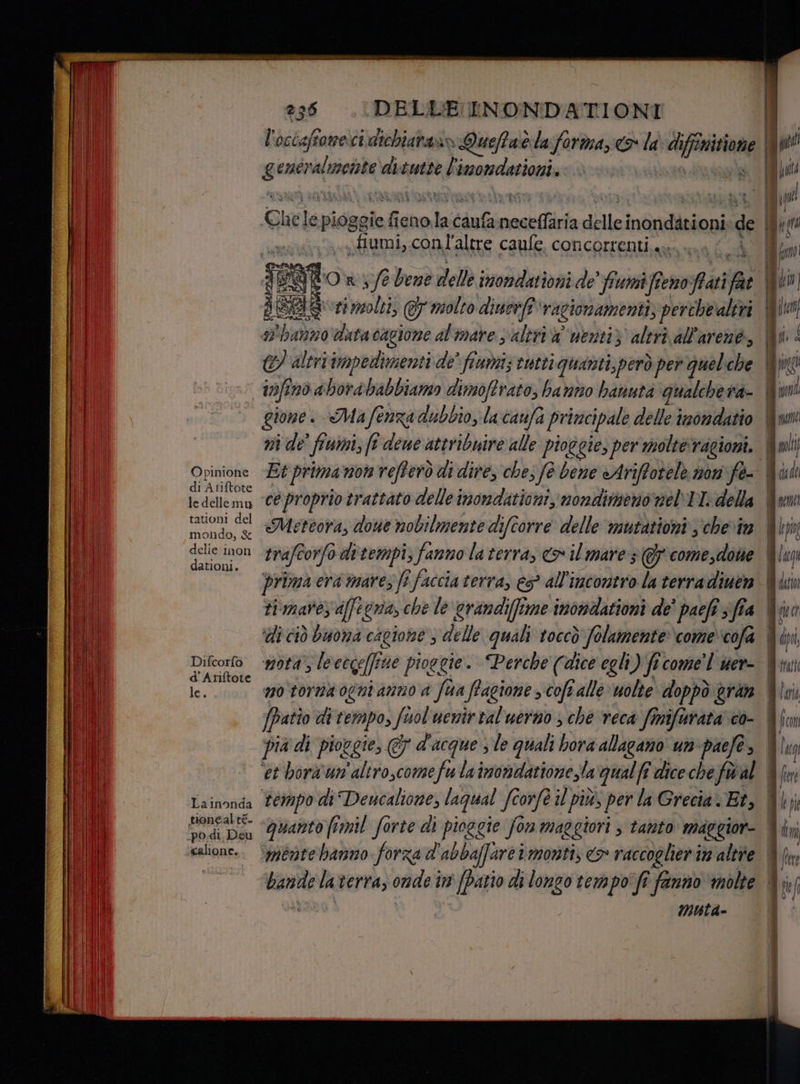 236 DELLE INONDATIONI
l'occasione ci dichiara. Questa è la forma, & la diffinitione
generalmente di tutte l'inondationi.
Che le pioggie sieno la causa necessaria delle inondationi de
fiumi, con l'altre cause concorrenti.
OR, se bene delle inondationi de' fiumi sieno stati fat
ti molti, & molto diuersi ragionamenti, perche altri
n'hanno data cagione al mare, altri a' uenti, altri all'arene,
& altri impedimenti de' fiumi; tutti quanti, però per quel che
infino a hora habbiamo dimostrato, hanno hauuta qualche ra-
gione. Ma senza dubbio, la causa principale delle inondatio
ni de' fiumi, si deue attribuire alle pioggie, per molte ragioni.
Opinione
di Aristote
le delle mu
tationi del
mondo, &
delle inon
dationi.
Et prima non resterò di dire, che, se bene Aristotele non fe-
ce proprio trattato delle inondationi, nondimeno nel II. della
Meteora, doue nobilmente discorre delle mutationi, che in
trascorso di tempi, fanno la terra, & il mare; & come, doue
prima era mare, si faccia terra, & all'incontro la terra diuen
ti mare, assegna, che le grandissime inondationi de' paesi, sia
di ciò buona cagione, delle quali toccò solamente come cosa
Discorso
d'Aristote
le.
nota, le eccessiue pioggie. Perche (dice egli) si come'l uer-
no torna ogni anno a sua stagione, cosi alle uolte doppò gran
spatio di tempo, suol uenir tal uerno, che reca smisurata co-
pia di pioggie, & d'acque, le quali hora allagano un paese,
et hora un'altro, come fu la inondatione, la qual si dice che fù al
La inonda
tione al tē-
po di Deu
calione.
tempo di Deucalione, laqual scorse il più, per la Grecia. Et,
quanto simil sorte di pioggie son maggiori, tanto maggior-
mente hanno forza d'abbassare i monti, & raccoglier in altre
bande la terra, onde in spatio di longo tempo si fanno molte
muta-